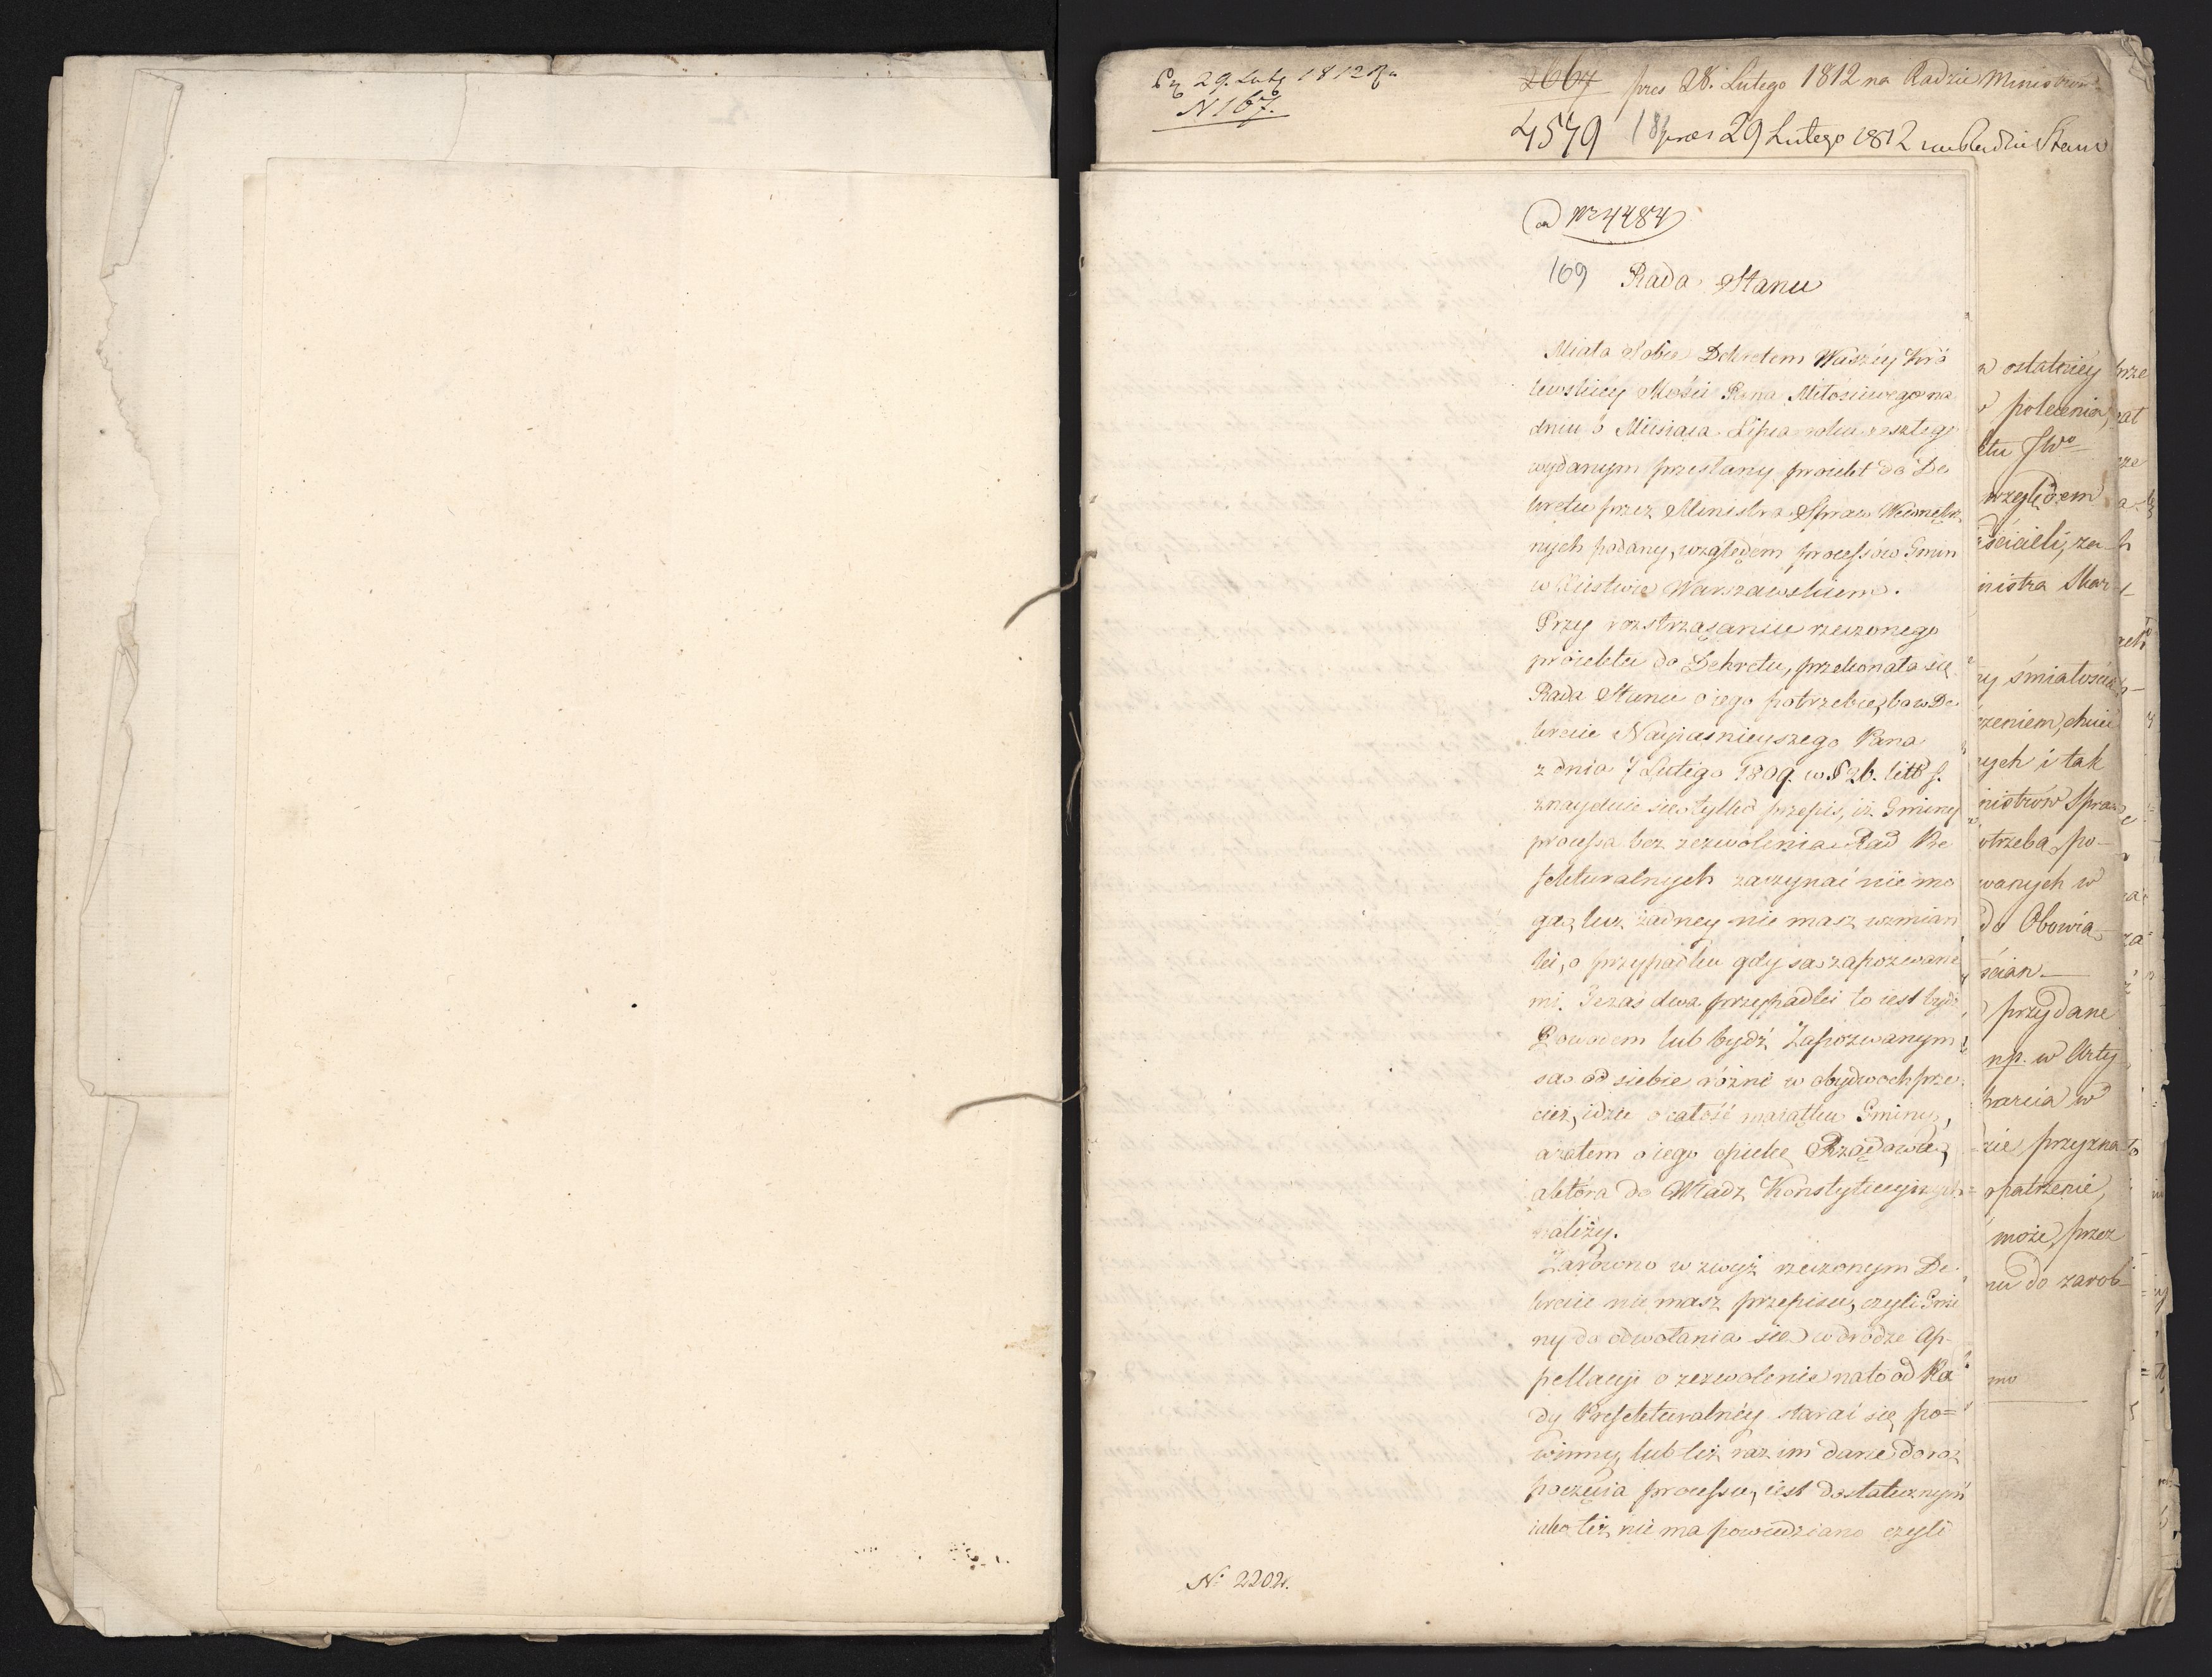 29. Lutg 1812 Ru
N 167.
2667 pres 28. Lutego 1812 na Radzie Ministrow
4579 18 praes 29 Lutego 1812 na Radzie Stanu
ad Nr 4484
169 Rada Stanu
Miała Sobie Dekretem Waszey Kró
lewskiey Mości Pana Miłościwego na
dniu 6 Miesiąca Lipca roku zeszłego
wydanym przesłany proiekt do De
kretu przez Ministra Spraw Wewnętrz
nych podany, względem processów Gmin
w Xięstwie Warszawskiem.
Przy rozstrząsaniu rzeczonego
proiektu do Dekretu, przekonała się
Rada Stanu o iego potrzebie, bo w De
krecie Nayiaśnieyszego Pana
z dnia 7 Lutego 1809. w § 26. litt f.
znayduie się tylko przepis, iż Gminy
processa bez zezwolenia Rad Pre
fekturalnych zaczynać nie mo
gą, lecz żadney nie masz wzmian
ki, o przypadku gdy są zapozwane
mi. Że zaś dwa przypadki to iest bydź
Powodem lub bydź Zapozwanym
są od siebie różne w obydwoch prze
cież, idzie o całość maiątku Gminy,
a zatem o iego opiekę Rządową,
a która do Władz Konstytucyjnych
należy.
Zarówno w zwyż rzeczonym De
krecie nie masz przepisu, czyli Gmi
ny do odwołania się w drodze Ap-
pellacyi o zezwolenie na to od Ra
dy Prefekturalnéy starać się po=
winny, lub też raz im dane do roz
poczęcia processu, iest dostatecznym
iako też nie ma powiedziano czyli
No 2202.
w ostatniey
polecenia,
ktu JWo
względem
ścicieli, za
nistra Skar
śmiałości
czeniem, chcieć
ych i tak
nistrów Spraw
otrzeba, po-
wanych w
do Obowią
ścian
przydane
np. w Arty
parcia w
zie przyzna
opatrzenie,
może, przez
nu do zarob
mo